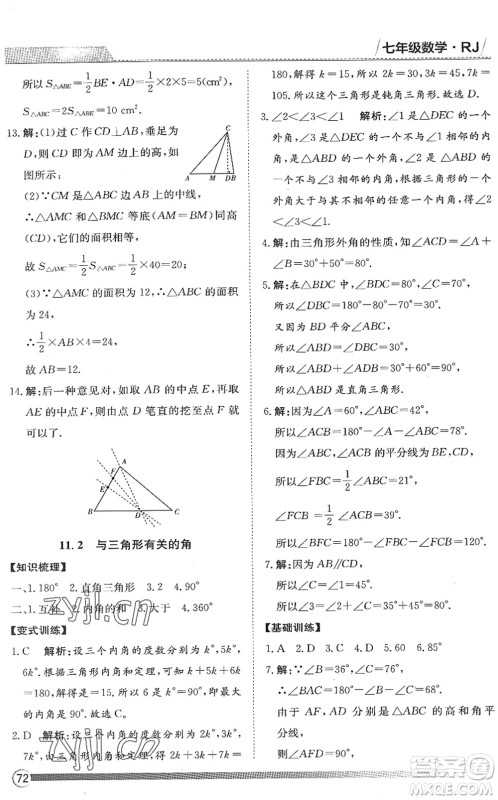 七年级数学·RJ
所以 S△ABE=1/2 BE·AD=1/2×2×5=5(cm²)
S△ABC=2S△ABE=10 cm².
13.解:(1)过 C 作 CD⊥AB,垂足为 D,
则 CD 即为 AB 边上的高,
如图所示:
C
A M D B
(2)∵CM 是△ABC 边 AB 上的中线,
∴△AMC 和△BMC 等底同高
(CD),它们的面积相等,
故 S△AMC=1/2 S△ABC=1/2×40=20;
(3)∵△AMC 的面积为 12,
∴△ABC 的面积为
24,
∴1/2×AB×4=24,
故 AB=12.
14.解:后一种意见对,如图,取 AB 的中点 E,再取
AE 的中点 F,则由点 D 笔直的挖下去,就可
以了.
A
F
E
B D C
11.2 与三角形有关的角
【知识梳理】
一、1.180° 2.直角三角形 3.90°
二、1.互补 2.内角的和 3.大于 4.360°
【变式训练】
1.C 解析:设三个内角的度数分别为 5k°,k°,
6k°.根据三角形内角和定理,可知 5k+k+6k=
180,得 k=15,所以 6k=90,即最大的内角是
90°.故选 C.
2.D 解析:设三个内角的度数分别为 2k°,3k°,
7k°,由三角形内角和定理得 2k+3k+7k=
180,解得 k=15,则 2k=30,3k=45,7k=
105,所以这个三角形是钝角三角形.故选 D.
3.∠2<∠3<∠1 解析:∠1 是△DEC 的一个
外角,∠3 是△DEC 的一个与∠1 不相邻的内
角,∠3 是△ABD 的一个外角,∠2 是△ABD
的一个与∠3 不相邻的内角,根据三角形的一
个外角大于与它不相邻的任何一个内角,得∠2
<∠3<∠1.
4.解:由三角形外角的性质,知∠ACD=∠A+
∠B,所以∠A=∠ACD-∠B=80°.
5.解:因为∠A+∠ABC+∠C=180°,
所以∠ABC=180°-∠A-∠C=60°.
又因为 BD 平分∠ABC,
所以∠ABD=∠DBC=30°.
所以∠ABD+∠ADB=30°+95°=125°.
所以∠A+∠ABD+∠ADB=180°.
6.解:因为∠A=60°,∠ABC=42°,
所以∠ACB=180°-∠A-∠ABC=78°.
因为∠ABC,∠ACB 的平分线为 BE,CD,
所以∠FBC=1/2∠ABC=21°,
∠FCB=1/2∠ACB=39°,
所以∠BFC=180°-∠FBC-∠FCB=120°.
7.解:因为 AB∥CD,所以∠1=∠A=45°,
所以∠C=∠1-∠E=15°.
【基础训练】
1.B 2.A 3.D 4.D 5.60 6.85°
7.解:∵∠B=36°,∠C=76°,
∴∠BAC=180°-∠B-∠C=68°.
由题意知,AD、AO 分别是高和角平
分线,
72
zyjl.cn
答案圈
MXQE.COM